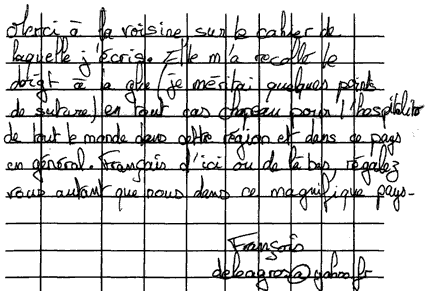 Merci à la voisine sur le cahier de
laquelle j'écris. Elle m'a recollé le
doigt à la glue (je méritai quelques points
de suture) en tout cas chapeau pour l'hospitalité
de tout le monde dans cette région et dans ce pays
en général. Français d'ici ou de là bas, régalez
vous autant que nous dans ce magnifique pays-
François
deleagros@yahoo.fr